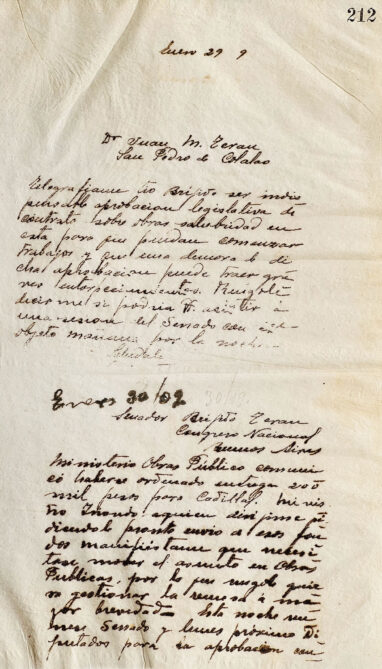 212
Enero 29 9
Dr Juan M. Teran
San Pedro de Colalao
Telegrafiame tio Brigido ser indis
pensable aprobacion legislativa de
contrato sobre obras salubridad en
esta para que puedan comenzar
trabajos y que una demora de di
cha aprobacion puede traer gra
ves entorpecimientos. Ruegole
decirme si podria V. asistir à
una sesion del Senado con ese
objeto mañana por la noche.
Saludale
Enero 30/09
Senador Brigido Teran
Congreso Nacional
Buenos Aires
Ministerio Obras Publicas comuni
có haberse ordenado entrega 200
mil pesos para Cadillal. Minis
tro Iriondo à quien dirijime pi
diendole pronto envio de esos fon
dos manifiestame que necesi
tase mover el asunto en Obras
Publicas, por lo que ruegole quie
ra gestionar la remesa à ma
yor brevedad. Esta noche reu
nese Senado y lunes próximo Di
putados para la aprobacion con